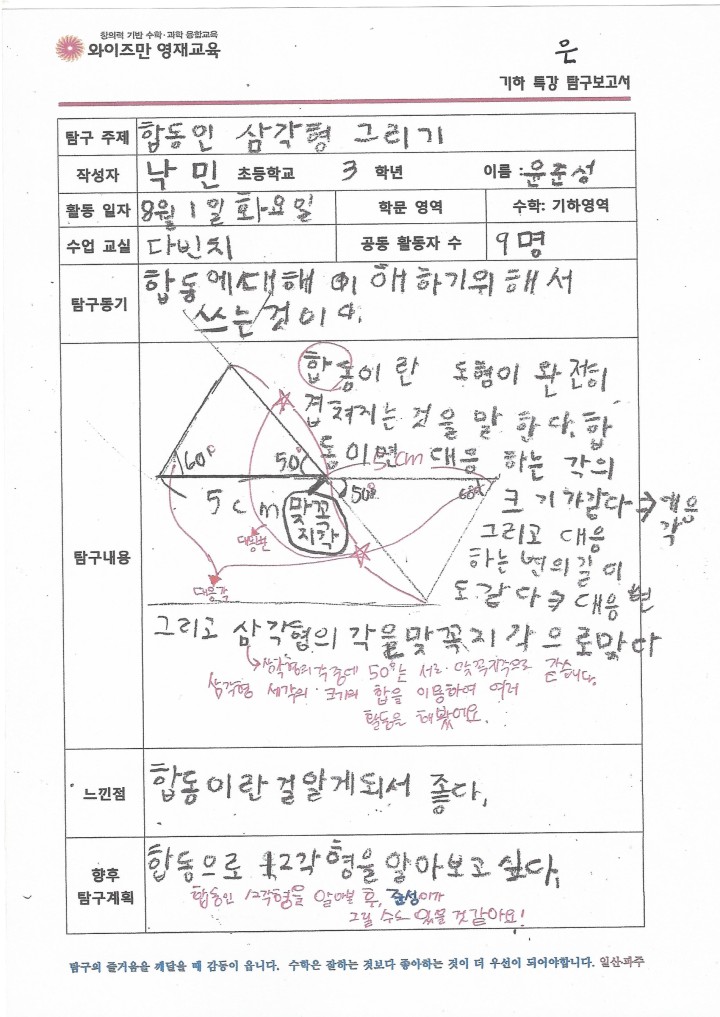 창의적 기반 수학·과학 융합교육
와이즈만 영재교육
은
기하 특강 탐구보고서
탐구 주제 합동인 삼각형 그리기
작성자 낙민 초등학교 3 학년 이름 : 윤준성
활동 일자 8월 1일 화요일 학문 영역 수학: 기하영역
수업 교실 다빈치 공동 활동자 수 9명
탐구동기 합동에대해 이해하기위해서
쓰는것이다.
탐구내용
합동이란 도형이 완전히
겹쳐지는 것을 말한다. 합
동이면 대응 하는 각의
크기가같다→대응
각
그리고 대응
하는 변의길이
도 같다→대응변
60°
50°
5cm
50°
60°
5cm
맞꼭
지각
대응변
대응각
그리고 삼각형의 각을맞꼭지각으로맞다
→삼각형의 각 중에 50°는 서로 맞꼭지각으로
삼각형 세각의 크기의 합을 이용하여 여러
합동을 해봤어요.
느낀점 합동이란걸알게되서 좋다.
향후
탐구계획
합동으로 12각형을 알아보고 싶다.
합동인 12각형을 알아본 후, 준성이가
그릴 수도 있을 것 같아요!
탐구의 즐거움을 깨달을 때 감동이 옵니다. 수학은 잘하는 것보다 좋아하는 것이 더 우선이 되어야합니다. 일산·파주